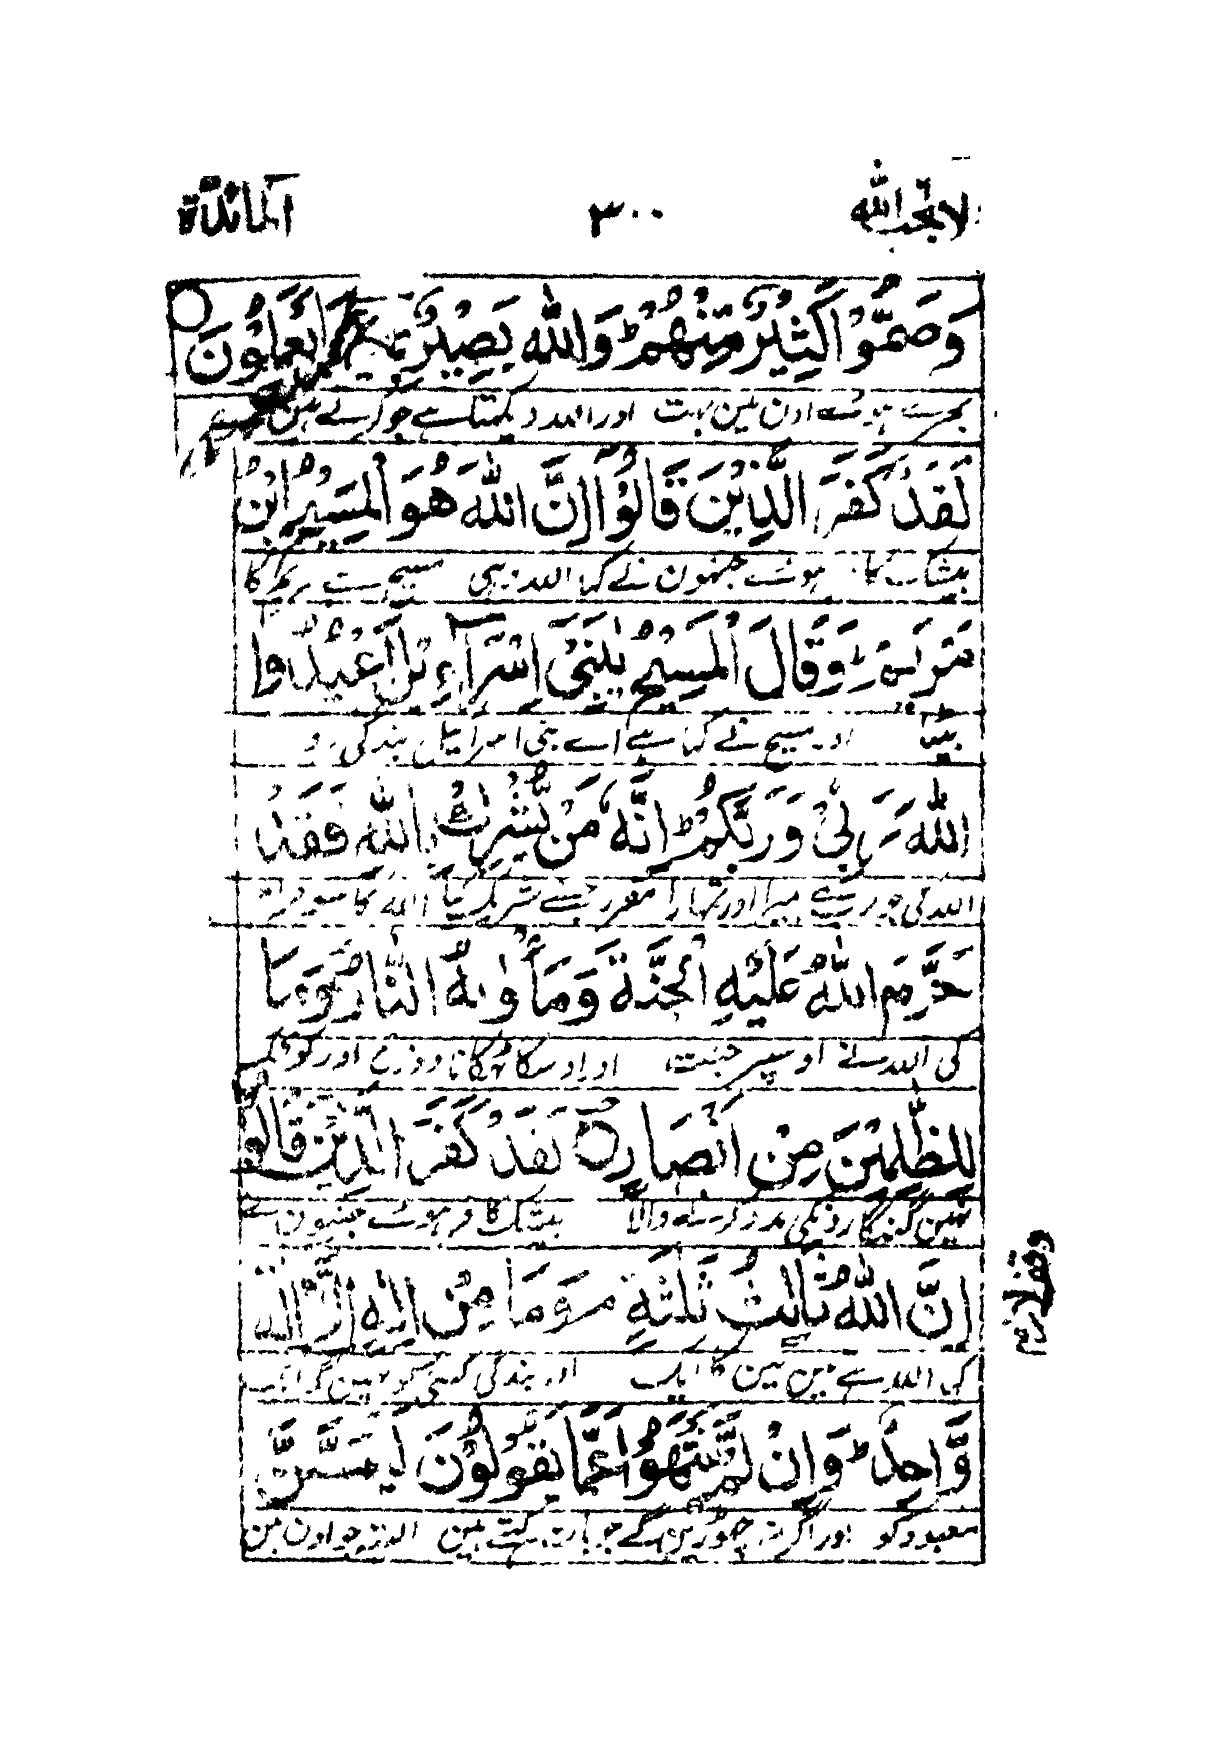 لا یحب اللہ ٣٠٠ المائدة
وَصَمُّوْا كَثِیْرٌ مِّنْهُمْ ؕ وَاللّٰهُ بَصِیْرٌۢ بِمَا یَعْمَلُوْنَ
بہرے ہوئے اون مین بہت اور اللہ دیکھتا ہے جو کرتے ہین
لَقَدْ كَفَرَ الَّذِیْنَ قَالُوْۤا اِنَّ اللّٰهَ هُوَ الْمَسِیْحُ ابْنُ
بیشک کا ہوئے جنہون نے کہا اللہ وہی مسیح ہے مریم کا
مَرْیَمَ ؕ وَقَالَ الْمَسِیْحُ یٰبَنِیْۤ اِسْرَآءِیْلَ اعْبُدُوا
بیٹا اور مسیح نے کہا ہے اے بنی اسرائیل بندگی کرو
اللّٰهَ رَبِّیْ وَرَبَّكُمْ ؕ اِنَّهٗ مَنْ یُّشْرِكْ بِاللّٰهِ فَقَدْ
اللہ کی جو رب ہے میرا اور تمہارا مقرر جسنے شریک کیا اللہ کا سو حرام
حَرَّمَ اللّٰهُ عَلَیْهِ الْجَنَّةَ وَمَاْوٰىهُ النَّارُ ؕ وَمَا
کی اللہ نے اوسپر جنت اور اوسکا ٹھکانا دوزخ اور کوئی
لِلظّٰلِمِیْنَ مِنْ اَنْصَارٍ لَقَدْ كَفَرَ الَّذِیْنَ قَالُوْۤا
نہین گنہگارونکی مدد کرنے والا بیشک کافر ہوئے جنہون نے
اِنَّ اللّٰهَ ثَالِثُ ثَلٰثَةٍ ۘ وَمَا مِنْ اِلٰهٍ اِلَّاۤ اِلٰهٌ
وقف لازم
کہا اللہ ہے تین مین کا ایک اور بندگی کسی کو نہین مگر ایک
وَّاحِدٌ ؕ وَاِنْ لَّمْ یَنْتَهُوْا عَمَّا یَقُوْلُوْنَ لَیَمَسَّنَّ
معبود کو اور اگر نہ چھوڑین گے جو بات کہتے ہین البتہ جو اون مین